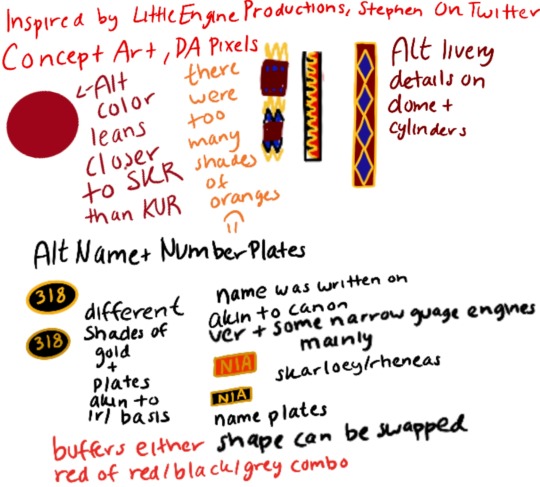 Inspired by LittleEngineProductions, Stephen On Twitter
Concept Art, DA Pixels
Alt
color
leans
closer
to SKR
than KUR
there
were
too
many
shades
of
oranges
Alt livery
details on
dome +
cylinders
Alt Name + Number Plates
318
318
different
shades of
gold
+
plates
akin to
irl basis
name was written on
akin to canon
ver + some narrow guage engines
mainly
skarloey/rheneas
NIA
NIA
name plates
buffers either shape can be swapped
red of red/black/grey combo